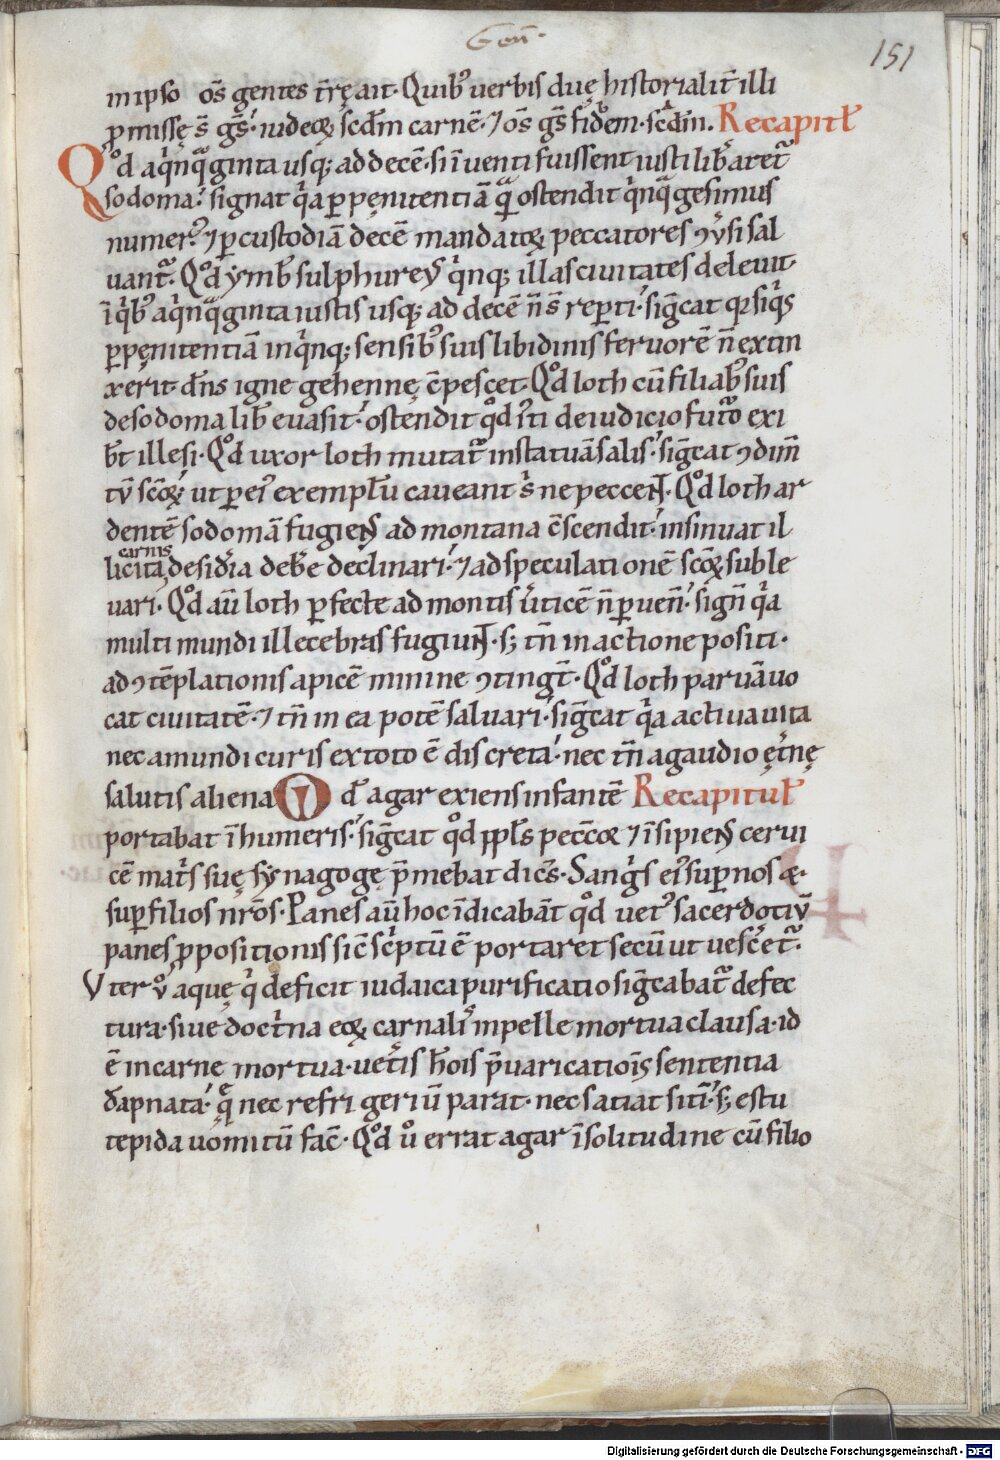 Geñ.
151
in ipso om̄s gentes t̄rę ait. Quib; uerbis duę historialit̄ illi
ꝓmissę s̄ gs̄. iudeoꝝ scd̄m carnē. ⁊ om̄s gs̄ fidem scd̄m. Recapitł
Qd aq̇nq̇ginta usq; ad decē si īuenti fuissent iusti lib̄aret᷑
sodoma. signat q̇a ꝑ pęnitentiā q̄ ostendit q̇nq̇gesimus
numer᷒. ⁊ ꝑ custodiā decē mandatoꝝ peccatores ꝯu̇si sal
uant᷑. Qd ymb̄ sulphurey᷒ q̇nq; illas ciuitates deleuit.
ī q̇b; aq̇nq̇ginta iustis usq; ad decē n̄ s̄ reꝑti. siḡcat qꝛ siq̇s
ꝑ pęnitentiā inq̇nq; sensib; suis libidinis feruorē n̄ extin
xerit. dn̄s igne gehennę ꝯpescet. Qd loth cū filiab; suis
de sodoma lib̄ euasit. ostendit qd i᷒ti de iudicio futo exi
b̄t illesi. Qd uxor loth mutat᷑ in statuā salis. siḡcat ꝯdim̄
tū scōꝝ. ut ꝑ ei᷒ exempłu caueant᷑ s̄ ne peccent. Qd loth ar
dentē sodomā fugiens ad montana ꝯscendit. insinuat il
carnis
licita desid̄ia deb̄e declinari. ⁊ ad speculationē scōꝝ suble
uari. Qd aū loth ꝑfecte ad montis u̇ticē n̄ ꝑuen̄. sign̄ q̇a
multi mundi illecebras fugiunt. s; tn̄ in actione positi.
ad ꝯtēplationis apicē minime ꝯtingt̄. Qd loth paruā uo
cat ciuitatē. ⁊ tn̄ in ea potē saluari. siḡcat q̇a actiua uita
nec a mundi curis ex toto ē discreta. nec tn̄ a gaudio ęt̄nę
salutis aliena Qd agar exiens infantē Recapituł
portabat ī humeris. siḡcat qd ppłs pecc̄cor ⁊ īsipiens cerui
cē mat̄s suę synagogę p̄mebat dicēs. Sang̾s ei᷒ suꝑ nos &.
suꝑ filios nr̄os. Panes aū hoc īdicabāt qd uet᷒ sacerdotiū
panes ꝓpositionis sic sc̾ptū ē portaret secū ut uescet᷑.
Uter ů aquę q̇ deficit iudaica purificatio siḡcabat᷑ defec
tura. siue doct̾na eoꝝ carnalis in pelle mortua clausa. id
ē in carne mortua. uet̄is hōis p̄uaricatiōis sententia
dāpnata. q̄ nec refrigeriū parat. nec satiat sitī. s; estu
tepida uomitū fac̄. Qd ů errat agar ī solitudine cū filio
Digitalisierung gefördert durch die Deutsche Forschungsgemeinschaft - DFG